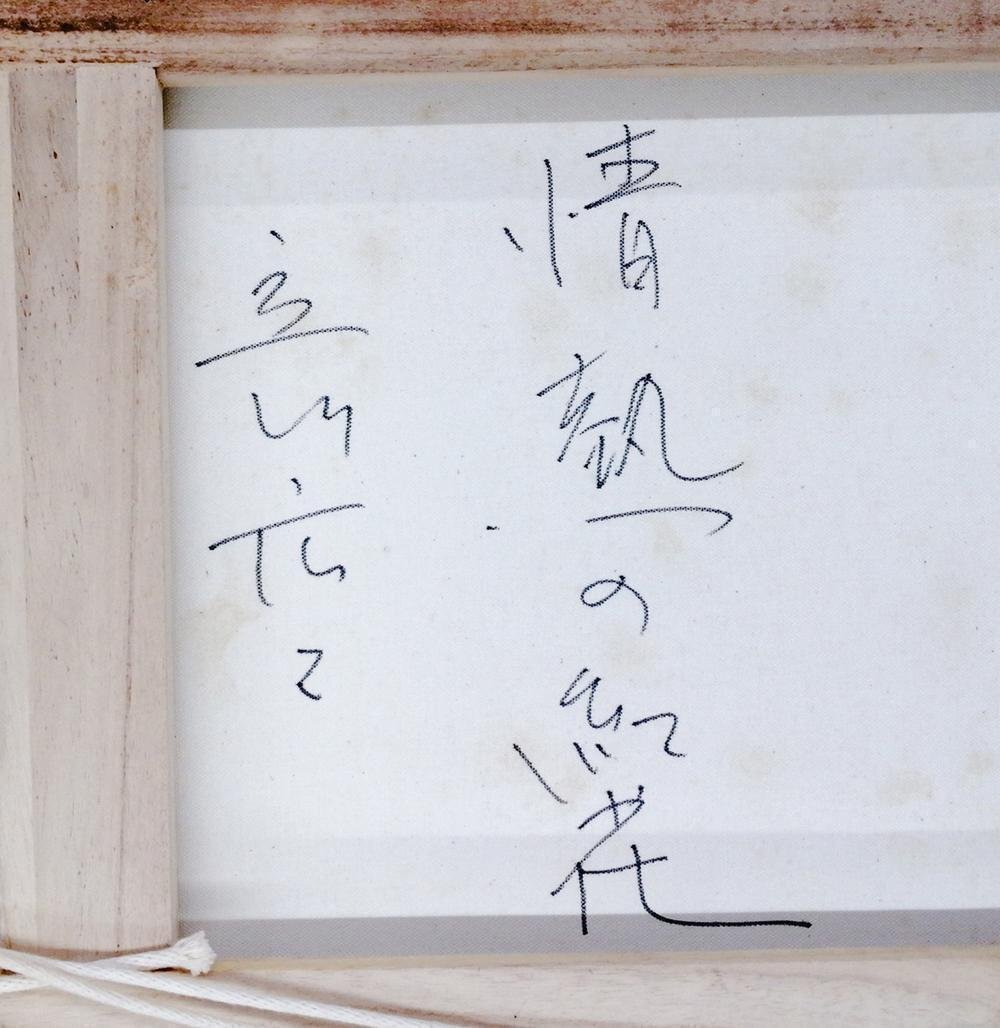 情熱の紅花
立川広己